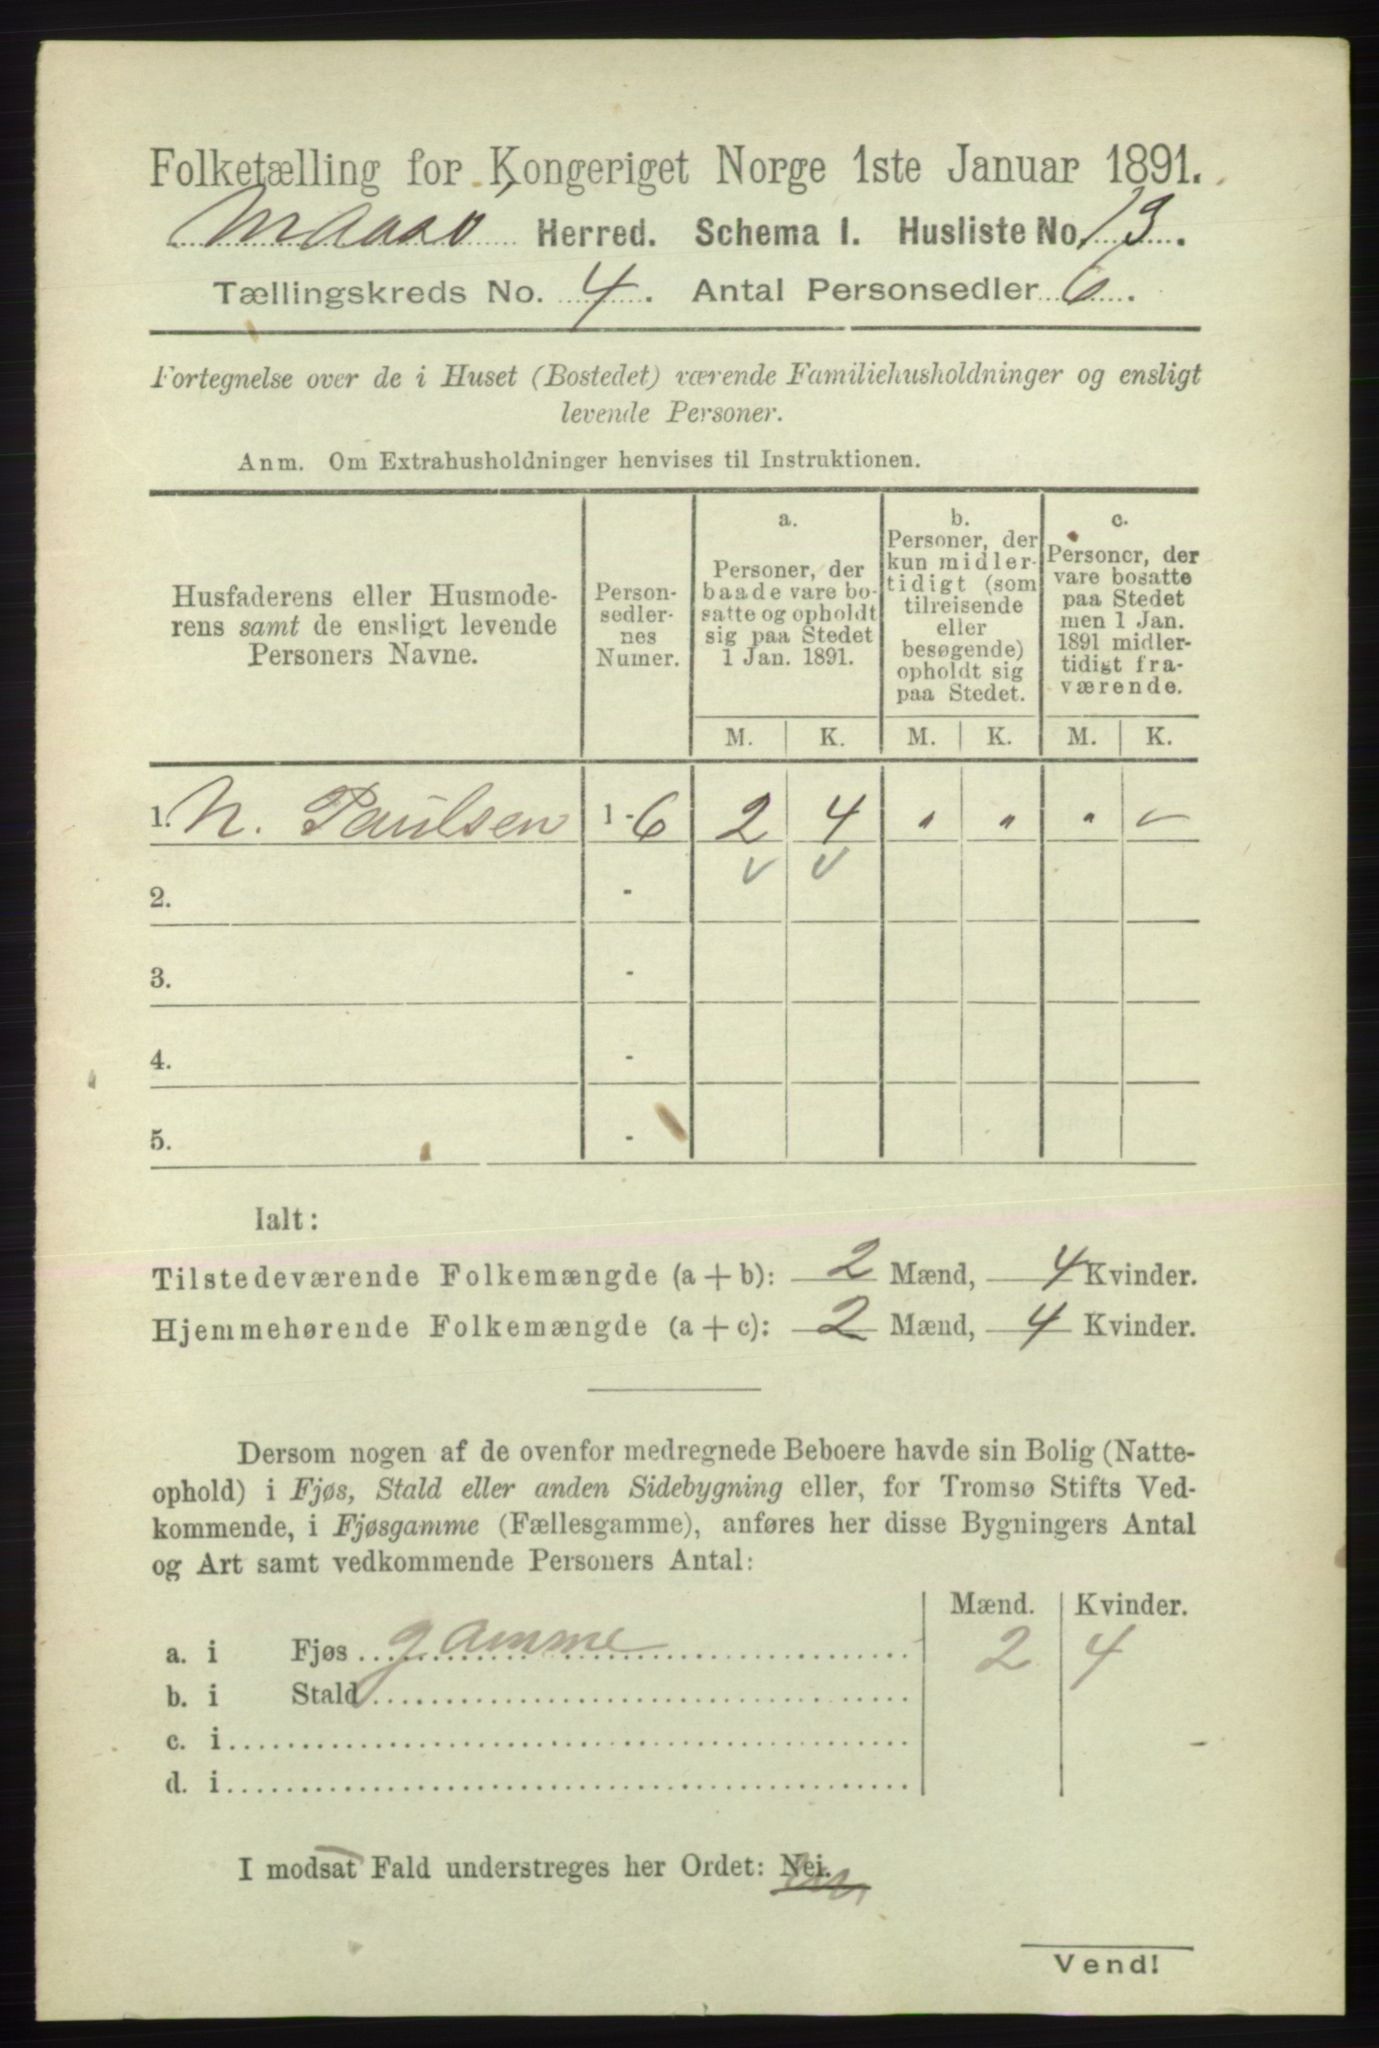 Folketælling for Kongeriget Norge 1ste Januar 1891.
Maasø Herred. Schema I. Husliste No. 13.
Tællingskreds No. 4. Antal Personsedler 6.
Fortegnelse over de i Huset (Bostedet) værende Familiehusholdninger og ensligt
levende Personer.
Anm. Om Extrahusholdninger henvises til Instruktionen.
Husfaderens eller Husmode-
rens samt de ensligt levende
Personers Navne.
Person-
sedler-
nes
Numer.
a.
Personer, der
baade vare bo-
satte og opholdt
sig paa Stedet
1 Jan. 1891.
b.
Personer, der
kun midler-
tidigt (som
tilreisende
eller
besøgende)
opholdt sig
paa Stedet.
c.
Personer, der
vare bosatte
paa Stedet
men 1 Jan.
1891 midler-
tidigt fra-
værende.
M. K. M. K. M. K.
1. N. Paulsen 1 - 6 2 4 " " " -
2. - v v
3. -
4. -
5. -
Ialt:
Tilstedeværende Folkemængde (a + b): 2 Mænd, 4 Kvinder.
Hjemmehørende Folkemængde (a + c): 2 Mænd, 4 Kvinder.
Dersom nogen af de ovenfor medregnede Beboere havde sin Bolig (Natte-
ophold) i Fjøs, Stald eller anden Sidebygning eller, for Tromsø Stifts Ved-
kommende, i Fjøsgamme (Fællesgamme), anføres her disse Bygningers Antal
og Art samt vedkommende Personers Antal:
Mænd. Kvinder.
a. i Fjøs gamme 2 4
b. i Stald
c. i
d. i
I modsat Fald understreges her Ordet: Nei.
Vend!